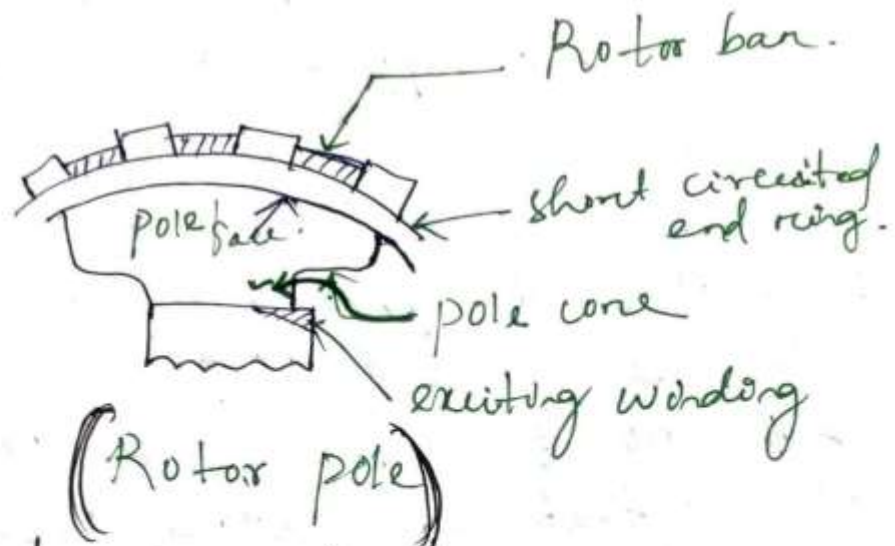 Rotor bar.
short circuited
end ring.
pole face.
pole core
exciting winding
(Rotor pole)